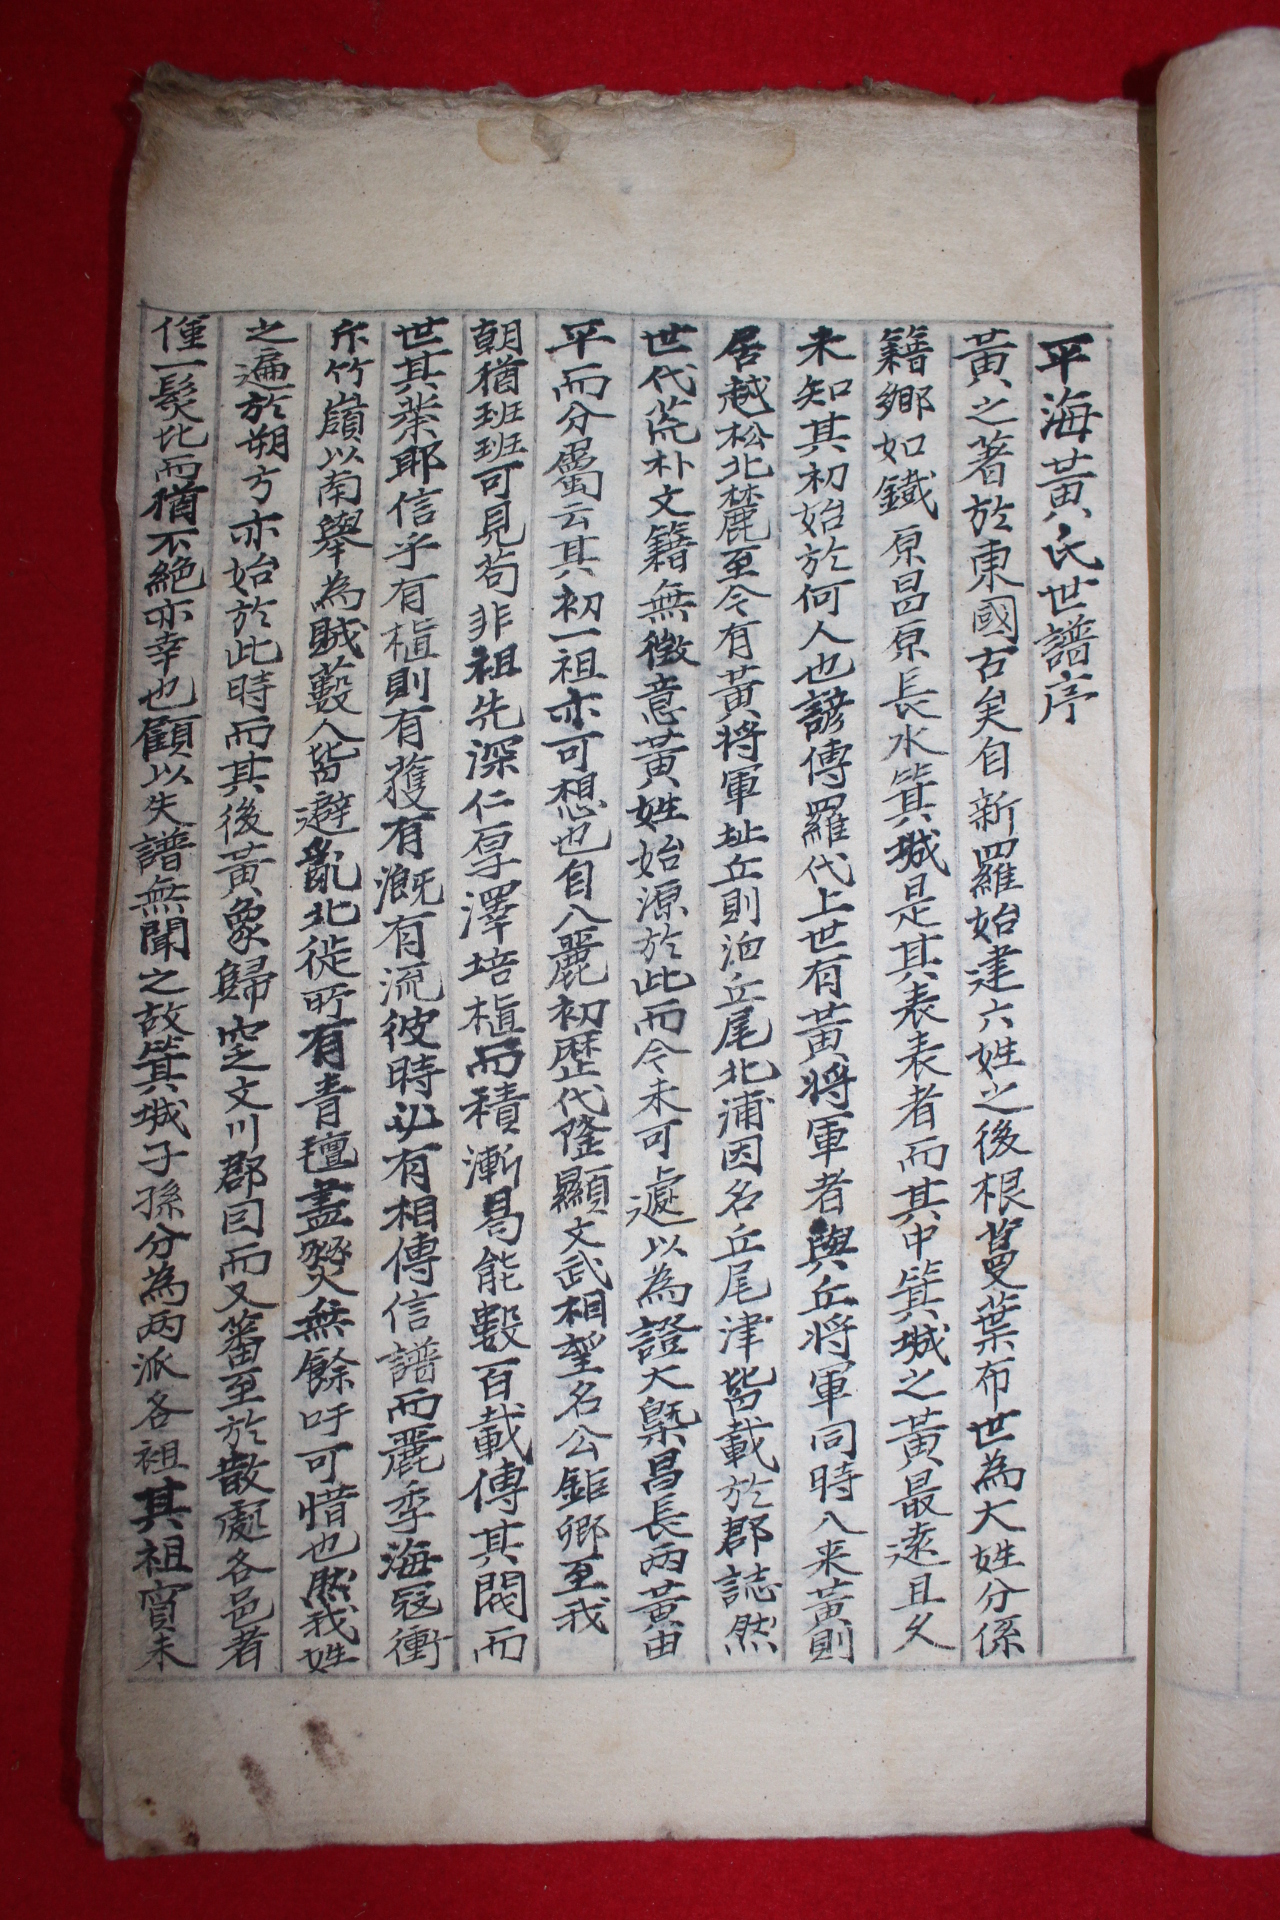 平海黃氏世譜序
黃之著於東國古矣自新羅始建六姓之後根蔓葉布世為大姓分係
籍鄉如鐵原昌原長水箕城是其表表者而其中箕城之黃最遠且久
未知其初始於何人也諺傳羅代上世有黃將軍者與丘將軍同時入来黃則
居越松北麓至今有黃將軍址丘則泊丘尾北浦因名丘尾津皆載於郡誌然
世代荒朴文籍無徵意黃姓始源於此而今未可遽以為證大槩昌長两黃由
平而分屬云其初一祖亦可想也自入麗初歷代隆顯文武相望名公鉅卿至我
朝猶班班可見苟非祖先深仁厚澤培植而積漸曷能數百載傳其閥而
世其業耶信乎有植則有獲有漑有流彼時必有相傳信譜而麗季海冦衝
斥竹嶺以南擧為賊藪人皆避亂北徙所有青氊盡燹無餘吁可惜也然我姓
之遍於朔方亦始於此時而其後黃象歸定文川郡因而又蕃至於散處各邑者
僅一髮比而猶不絶亦幸也顧以失譜無聞之故箕城子孫分為两派各祖其祖實未